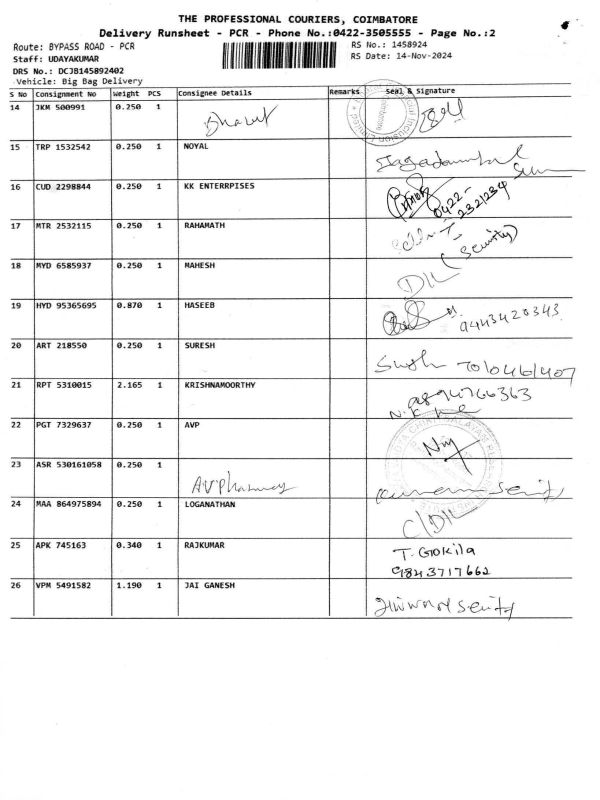 THE PROFESSIONAL COURIERS, COIMBATORE
Delivery Runsheet - PCR - Phone No.:0422-3505555 - Page No.:2
Route: BYPASS ROAD - PCR
RS No.: 1458924
Staff: UDAYAKUMAR
RS Date: 14-Nov-2024
DRS No.: DCJB145892402
Vehicle: Big Bag Delivery
S No Consignment No Weight PCS Consignee Details Remarks Seal & Signature
14 JKM 500991 0.250 1 Bharat
15 TRP 1532542 0.250 1 NOYAL
16 CUD 2298844 0.250 1 KK ENTERRPISES 0422-
2321234
17 MTR 2532115 0.250 1 RAHAMATH
(Security)
18 MYD 6585937 0.250 1 MAHESH
19 HYD 95365695 0.870 1 HASEEB 9443420343
20 ART 218550 0.250 1 SURESH
21 RPT 5310015 2.165 1 KRISHNAMOORTHY
22 PGT 7329637 0.250 1 AVP
23 ASR 530161058 0.250 1 AVPharmacy
24 MAA 864975894 0.250 1 LOGANATHAN
25 APK 745163 0.340 1 RAJKUMAR T. Gokila
9843717662
26 VPM 5491582 1.190 1 JAI GANESH